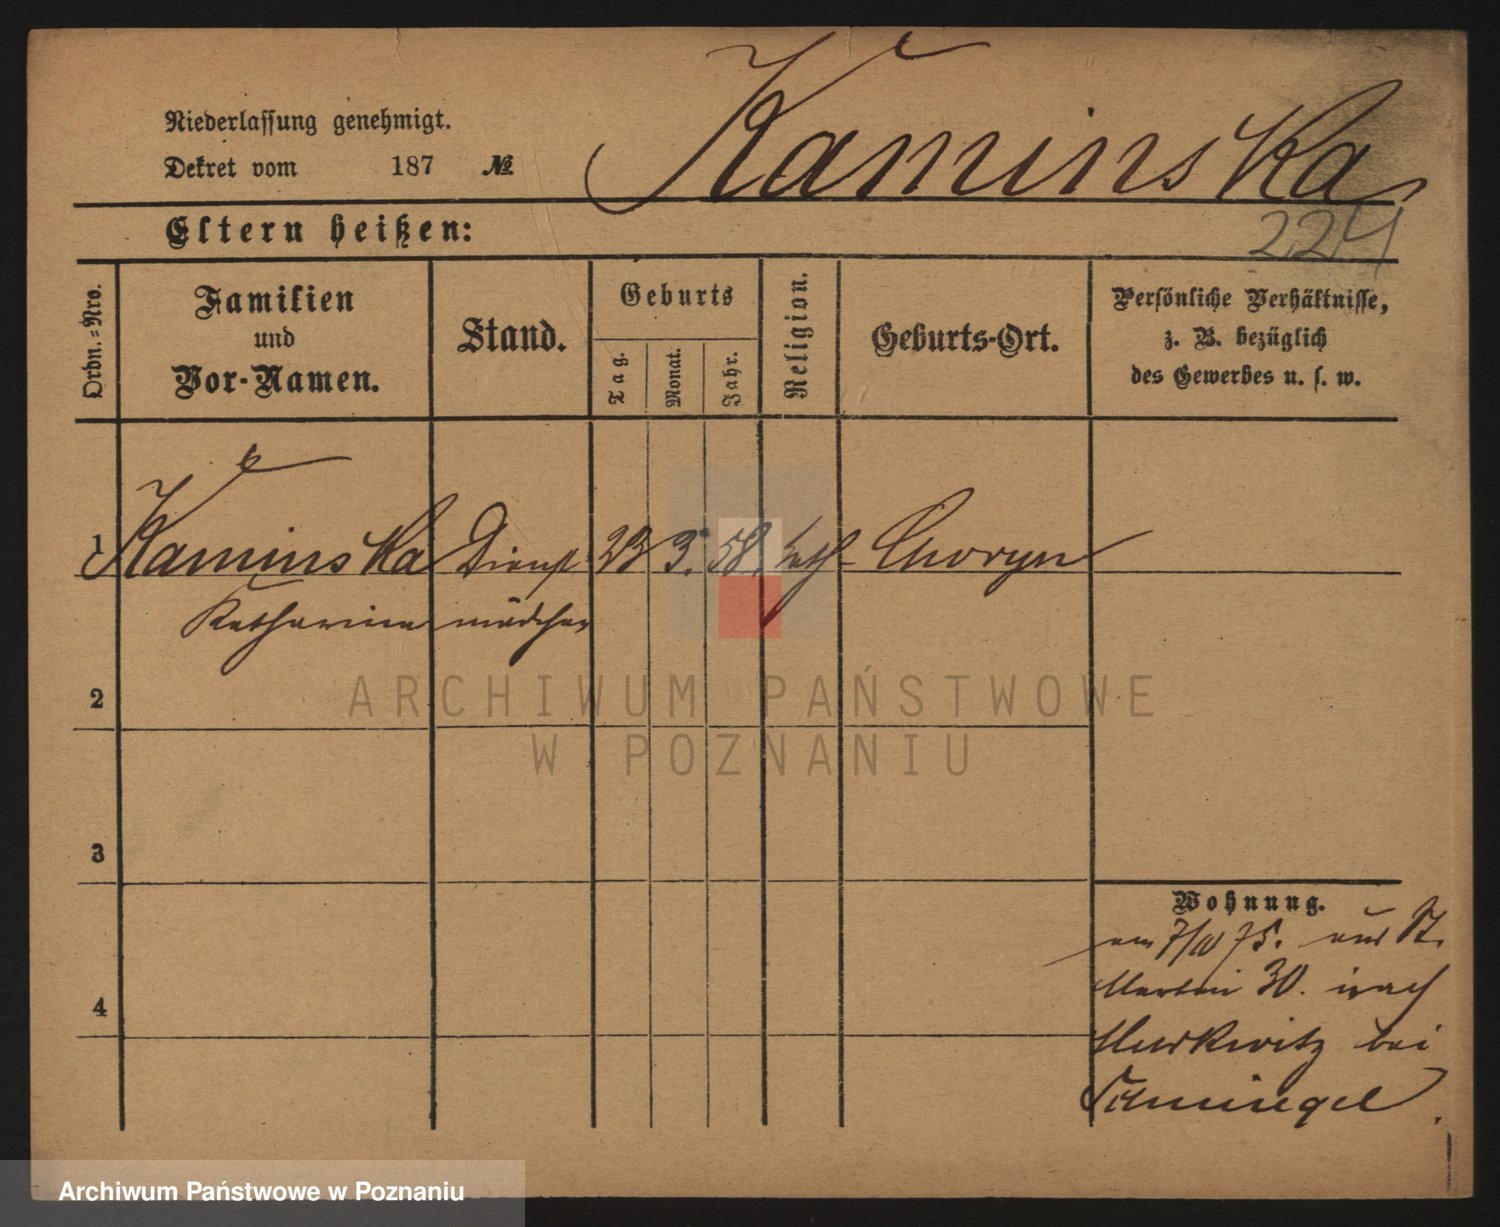 Niederlassung genehmigt.
Dekret vom 187 №
Kaminska
224
Eltern heißen:
Ordn.-Nro.
Familien
und
Vor-Namen.
Stand.
Geburts
Tag.
Monat.
Jahr.
Religion.
Geburts-Ort.
Persönliche Verhältnisse,
z. B. bezüglich
des Gewerbes u. s. w.
1 Kaminska Dienst 23 3. 58. kath Choryn
Katharina mädchen
2
3
4
Wohnung.
am 7/IV 75. aus St.
Martin 30. nach
bei
Schmiegel.
ARCHIWUM PAŃSTWOWE
W POZNANIU
Archiwum Państwowe w Poznaniu